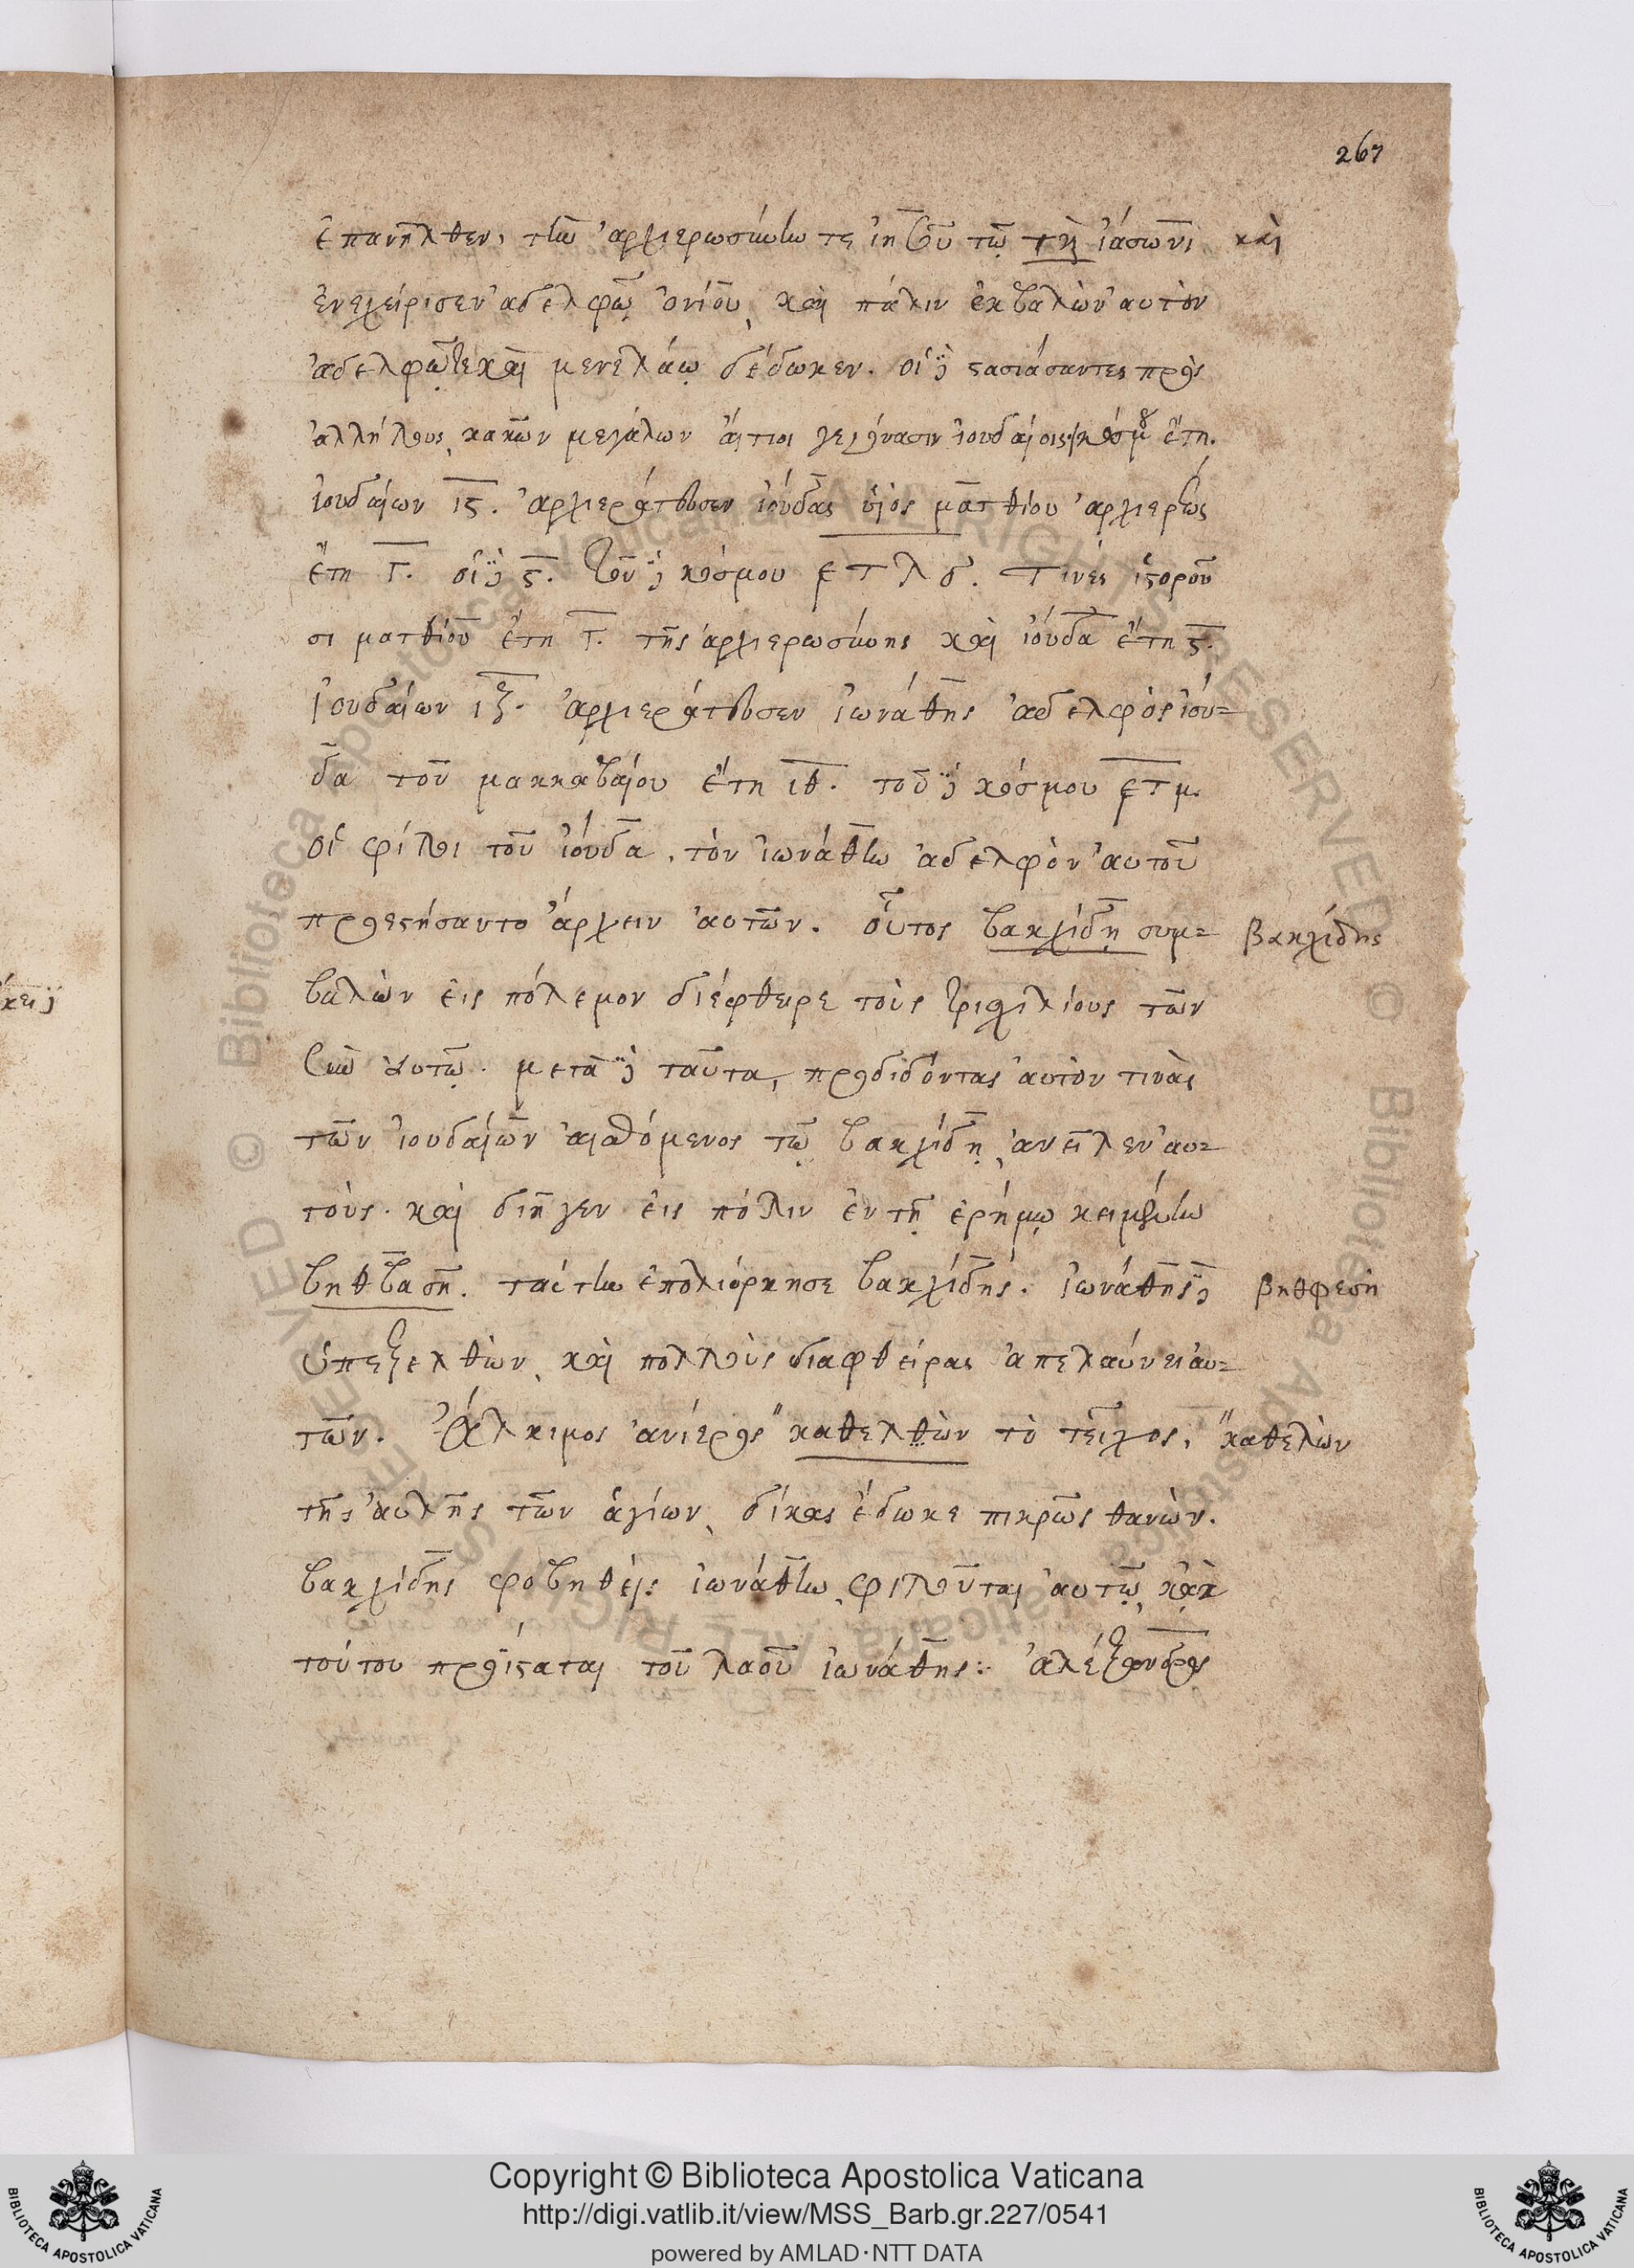 267
ἐπανῆλθεν, τὴν ἀρχιερωσύνην τε ἰησοῦ τῷ τῇ ἰάσωνι καὶ
ἐνεχείρισεν ἀδελφῷ ὀνίου, καὶ πάλιν ἐκβαλὼν αὐτὸν
ἀδελφῷ τε καὶ μενελάῳ δέδωκεν. οἳ δὲ στασιάσαντες πρὸς
ἀλλήλους, κακῶν μεγάλων αἴτιοι γεγόνασιν ἰουδαίοις κόσμου ἔτη.
ἰουδαίων ις. ἀρχιεράτευσεν ἰούδας υἱὸς ματθίου ἀρχιερέως
ἔτη γ. οἱ δὲ ς. τοῦ δὲ κόσμου ετλδ. τινὲς ἱστοροῦ
σι ματθίου ἔτη γ. τῆς ἀρχιερωσύνης καὶ ἰούδα ἔτη ς.
ἰουδαίων ιζ. ἀρχιεράτευσεν ἰωνάθης ἀδελφὸς ἰού=
δα τοῦ μακκαβαίου ἔτη ιθ. τοῦ δὲ κόσμου ετμ.
οἱ φίλοι τοῦ ἰούδα, τὸν ἰωνάθην ἀδελφὸν αὐτοῦ
προεστήσαντο ἄρχειν αὐτῶν. οὗτος βακχίδῃ συμ= βακχίδης
βαλὼν εἰς πόλεμον διέφθειρε τοὺς τρισχιλίους τῶν
σὺν αὐτῷ. μετὰ δὲ ταῦτα, προδιδόντας αὐτὸν τινὰς
τῶν ἰουδαίων αἰσθόμενος τῷ βακχίδῃ, ἀνεῖλεν αὐ=
τούς. καὶ διῆγεν εἰς πόλιν ἐν τῇ ἐρήμῳ κειμένην
βηθβασῆ. ταύτην ἐπολιόρκησε βακχίδης. ἰωνάθης δὲ βηθφεσὴ
ὑπεξελθὼν, καὶ πολλοὺς διαφθείρας ἀπελαύνει αὐ=
τῶν. Ἄλκιμος ἀνίερος "καθελθὼν τὸ τεῖχος, "καθελὼν
τῆς αὐλῆς τῶν ἁγίων, δίκας ἔδωκε πικρῶς θανών.
βακχίδης φοβηθεὶς ἰωνάθην, φιλοῦται αὐτῷ, κἀκ
τούτου προΐσταται τοῦ λαοῦ ἰωνάθης: ἀλέξανδρος
κει δ
Copyright © Biblioteca Apostolica Vaticana
http://digi.vatlib.it/view/MSS_Barb.gr.227/0541
powered by AMLAD·NTT DATA
BIBLIOTECA APOSTOLICA VATICANA
BIBLIOTECA APOSTOLICA VATICANA